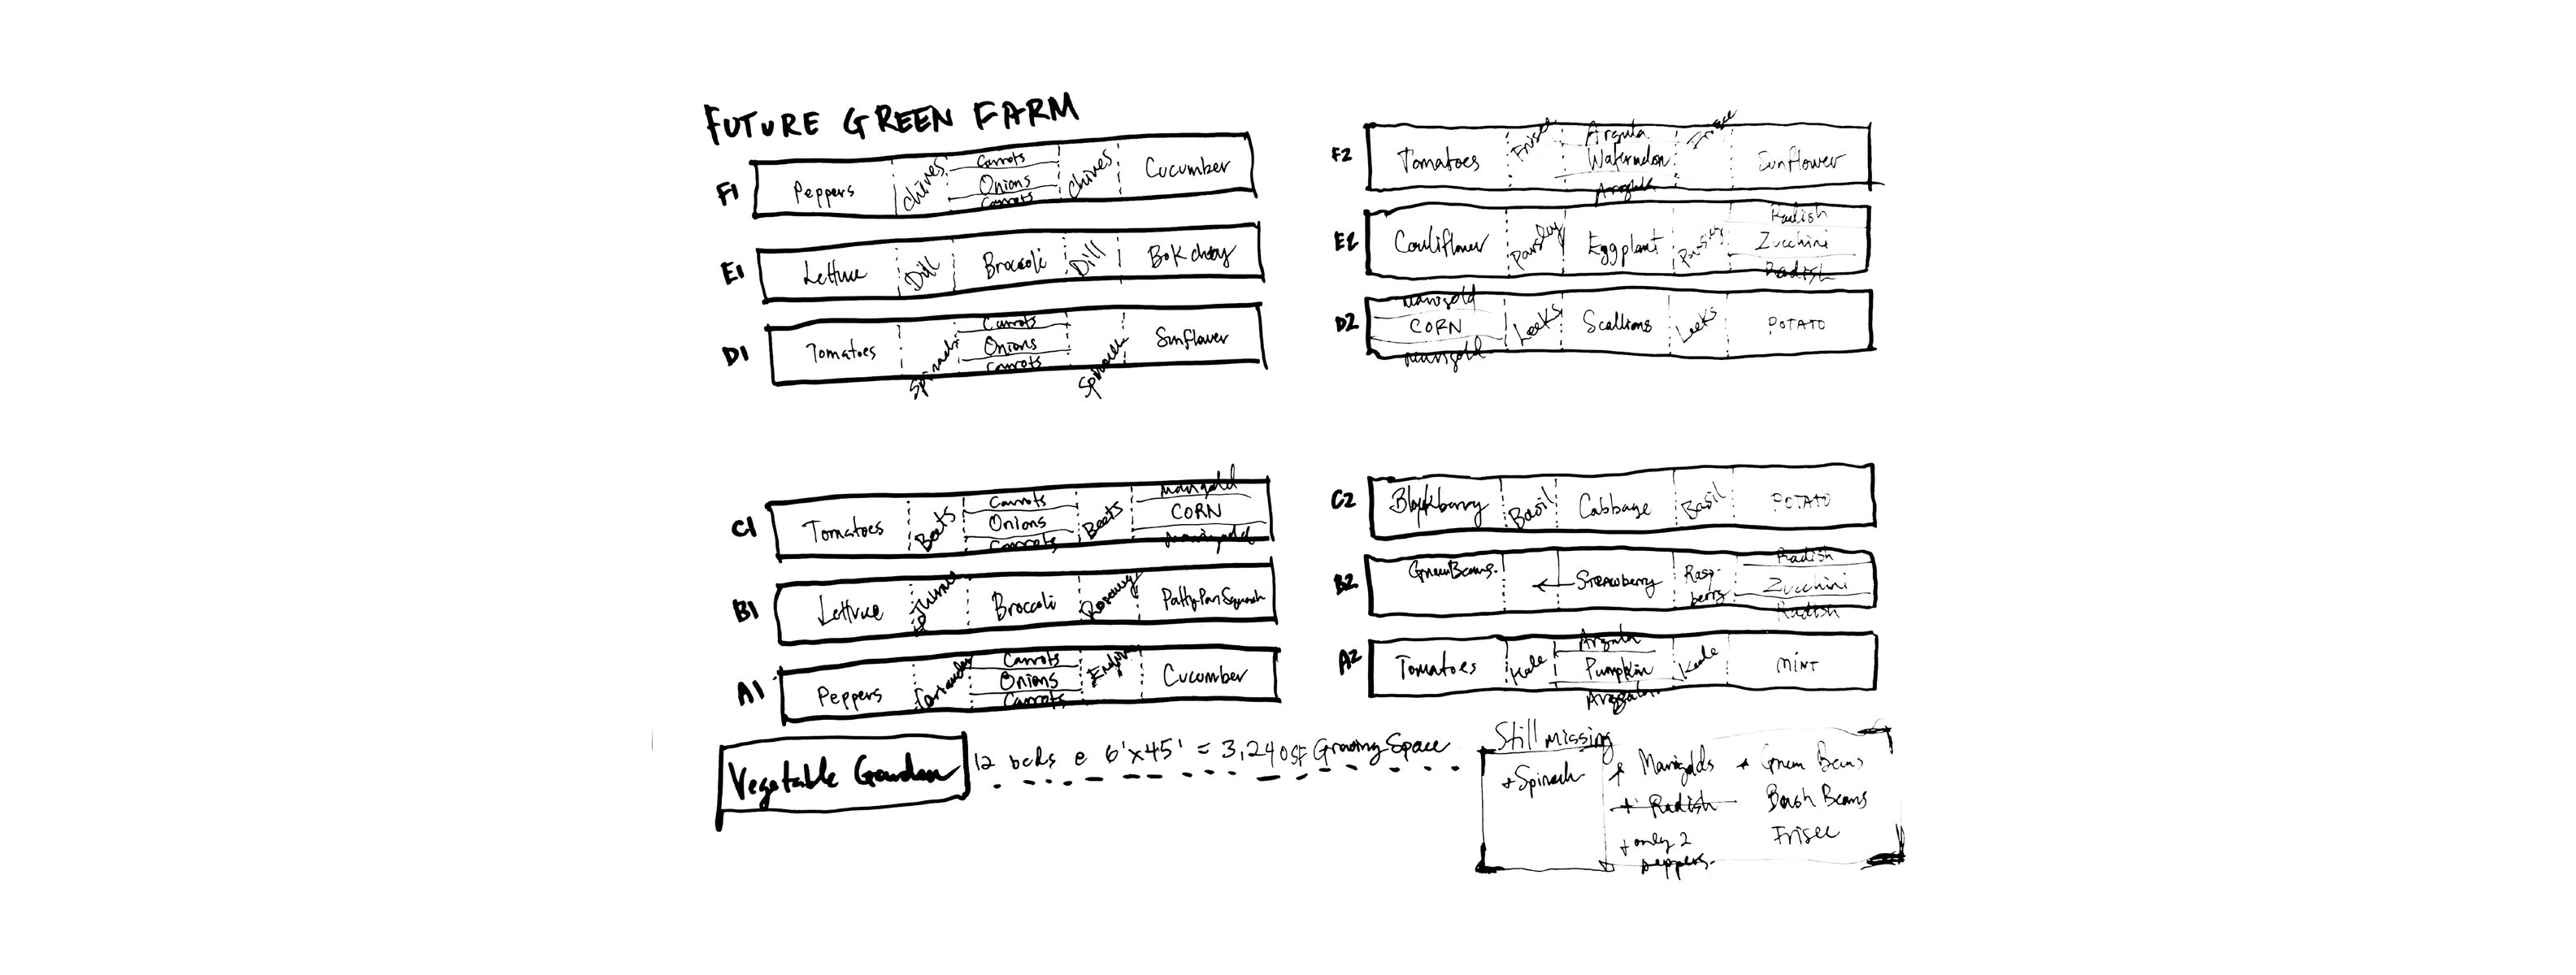 FUTURE GREEN FARM
F1
Peppers
chives
Carrots
Onions
Carrots
chives
Cucumber
E1
Lettuce
Dill
Broccoli
Dill
Bok choy
D1
Tomatoes
Spinach
Carrots
Onions
Carrots
Spinach
Sunflower
F2
Tomatoes
Frisee
Arugula
Watermelon
Arugula
Frisee
Sunflower
E2
Cauliflower
Parsley
Eggplant
Parsley
Radish
Zucchini
Radish
D2
marigold
CORN
marigold
Leeks
Scallions
Leeks
POTATO
C1
Tomatoes
Beets
Carrots
Onions
Carrots
Beets
marigold
CORN
marigold
B1
Lettuce
Broccoli
Rosemary
Patty Pan Squash
A1
Peppers
Coriander
Carrots
Onions
Carrots
Endive
Cucumber
C2
Blackberry
Basil
Cabbage
Basil
POTATO
B2
Green Beans.
STRAWberry
Rasp-
berry
Radish
Zucchini
Radish
A2
Tomatoes
Kale
Arugula
Pumpkin
Arugula
Kale
MINT
Vegetable Garden
12 beds @ 6'x45' = 3,240 SF Growing Space
Still missing
+ Spinach
+ Marigolds
+ Radish
+ only 2
peppers.
+ Green Beans
Bush Beans
Frisee